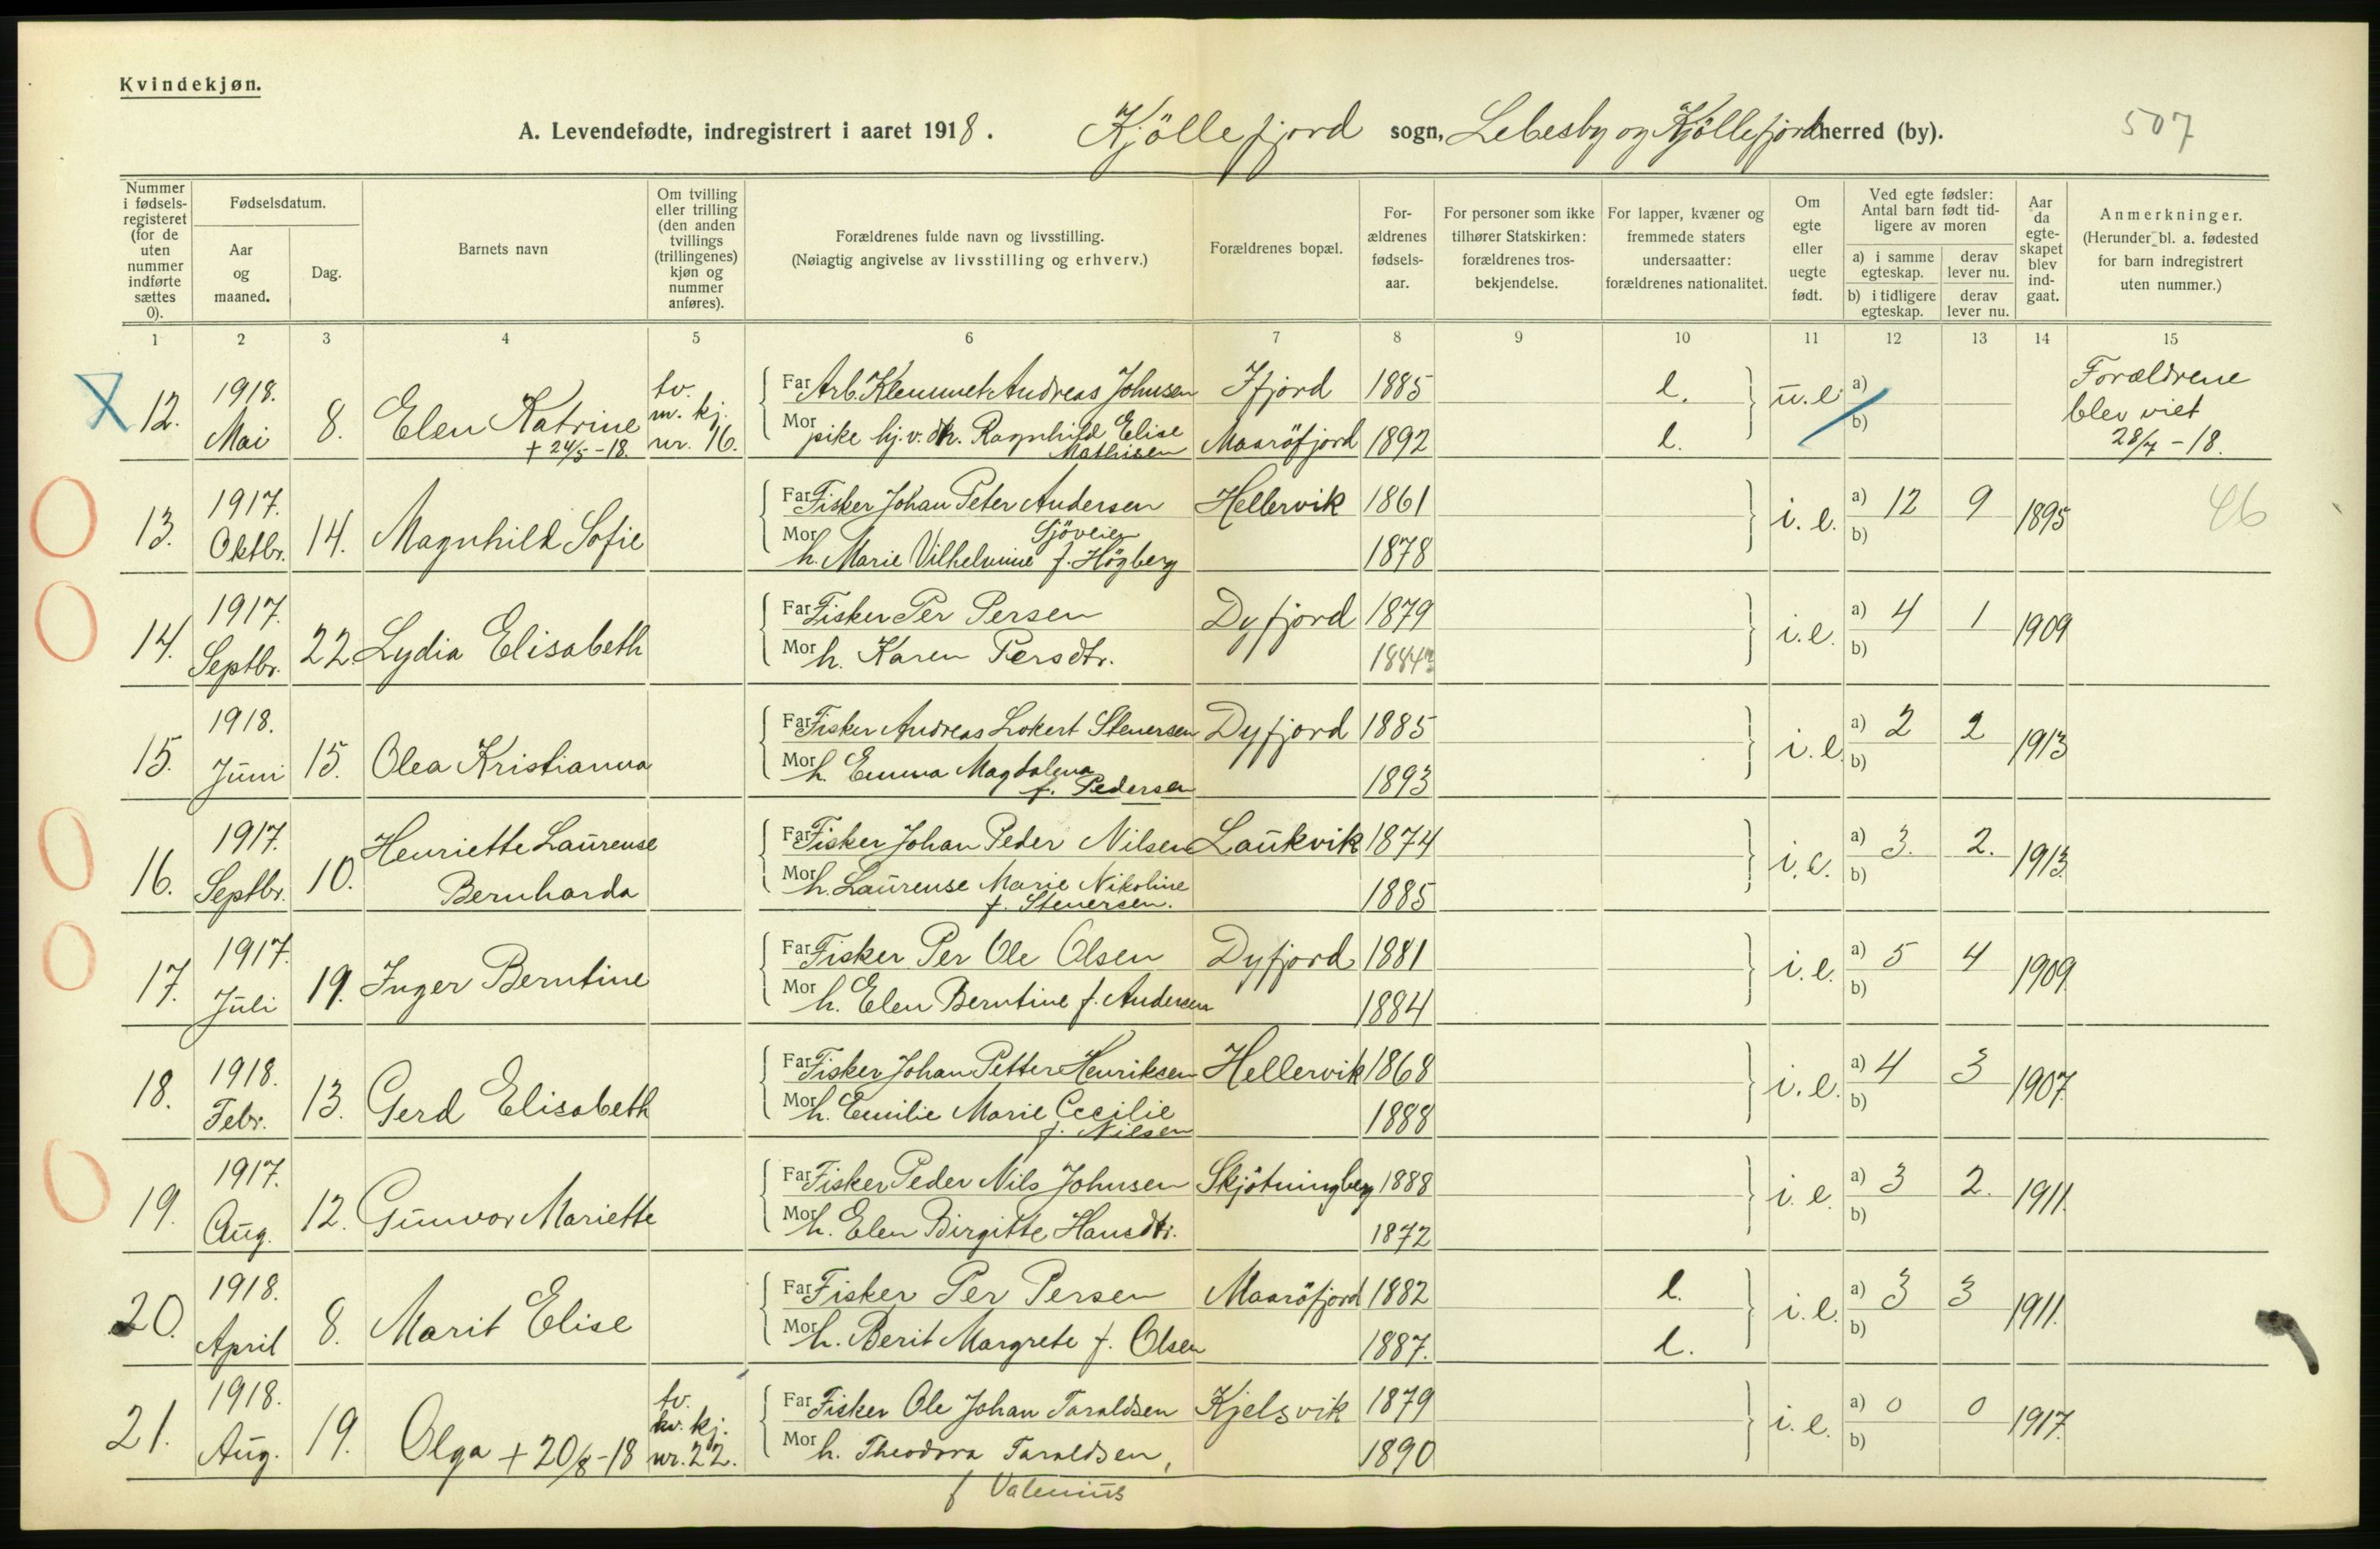 Kvindekjøn.
A. Levendefødte, indregistrert i aaret 1918. Kjöllefjord sogn, Lebesby og Kjöllefjord herred (by). 507
Nummer i fødsels-registeret (for de uten nummer indførte sættes 0).
Fødselsdatum.
Aar og maaned.
Dag.
Barnets navn
Om tvilling eller trilling (den anden tvillings (trillingenes) kjøn og nummer anføres).
Forældrenes fulde navn og livsstilling.
(Nøiagtig angivelse av livsstilling og erhverv.)
Forældrenes bopæl.
For-ældrenes fødsels-aar.
For personer som ikke tilhører Statskirken: forældrenes tros-bekjendelse.
For lapper, kvæner og fremmede staters undersaatter: forældrenes nationalitet.
Om egte eller uegte født.
Ved egte fødsler: Antal barn født tid-ligere av moren
a) i samme egteskap.
derav lever nu.
b) i tidligere egteskap.
derav lever nu.
Aar da egte-skapet blev ind-gaat.
Anmerkninger.
(Herunder bl. a. fødested for barn indregistrert uten nummer.)
1 2 3 4 5 6 7 8 9 10 11 12 13 14 15
12. 1918. Mai 8. Elen Katrine + 24/5 -18. tv. m. kj. nr. 16.
Far Arb. Klemmet Andreas Johnsen Ifjord 1885 l. u.e. a)
Mor pike hj. v. dtr. Ragnhild Elise Mathisen Maaröfjord 1892 l. b)
Forældrene blev viet 28/7 -18.
13. 1917. Oktbr. 14. Magnhild Sofie
Far Fisker Johan Peter Andersen Hellervik 1861 i.e. a) 12 9 1895 46
Gjöveien
Mor h. Marie Vilhelmine f. Högberg 1878 b)
14. 1917. Septbr. 22. Lydia Elisabeth
Far Fisker Per Persen Dyfjord 1879 i.e. a) 4 1 1909
Mor h. Karen Persdtr. 1884? b)
15. 1918. Juni 15. Olea Kristianna
Far Fisker Andreas Lokert Stenersen Dyfjord 1885 i.e. a) 2 2 1913
Mor h. Emma Magdalena f. Pedersen 1893 b)
16. 1917. Septbr. 10. Henriette Laurense Bernharda
Far Fisker Johan Peder Nilsen Laukvik 1874 i.e. a) 3. 2. 1913.
Mor h. Laurense Marie Nikoline f. Stenersen. 1885 b)
17. 1917. Juli 19. Inger Berntine
Far Fisker Per Ole Olsen Dyfjord 1881 i.e. a) 5 4 1909.
Mor h. Elen Berntine f. Andersen 1884 b)
18. 1918. Febr. 13. Gerd Elisabeth
Far Fisker Johan Petter Henriksen Hellervik 1868 i.e. a) 4 3 1907.
Mor h. Emilie Marie Cecilie f. Nilsen 1888 b)
19. 1917. Aug. 12. Gunvor Mariette
Far Fisker Peder Nils Johnsen Skjötningberg 1888 i.e. a) 3 2. 1911.
Mor h. Elen Birgitte Hansdtr. 1872 b)
20. 1918. April 8. Marit Elise
Far Fisker Per Persen Maaröfjord 1882 l. i.e. a) 3 3 1911.
Mor h. Berit Margrete f. Olsen 1887. l. b)
21. 1918. Aug. 19. Olga + 20/8 -18 tv. kv. kj. nr. 22.
Far Fisker Ole Johan Taraldsen Kjelsvik 1879 i.e. a) 0 0 1917.
Mor h. Theodora Taraldsen, 1890 b)
f Valenius